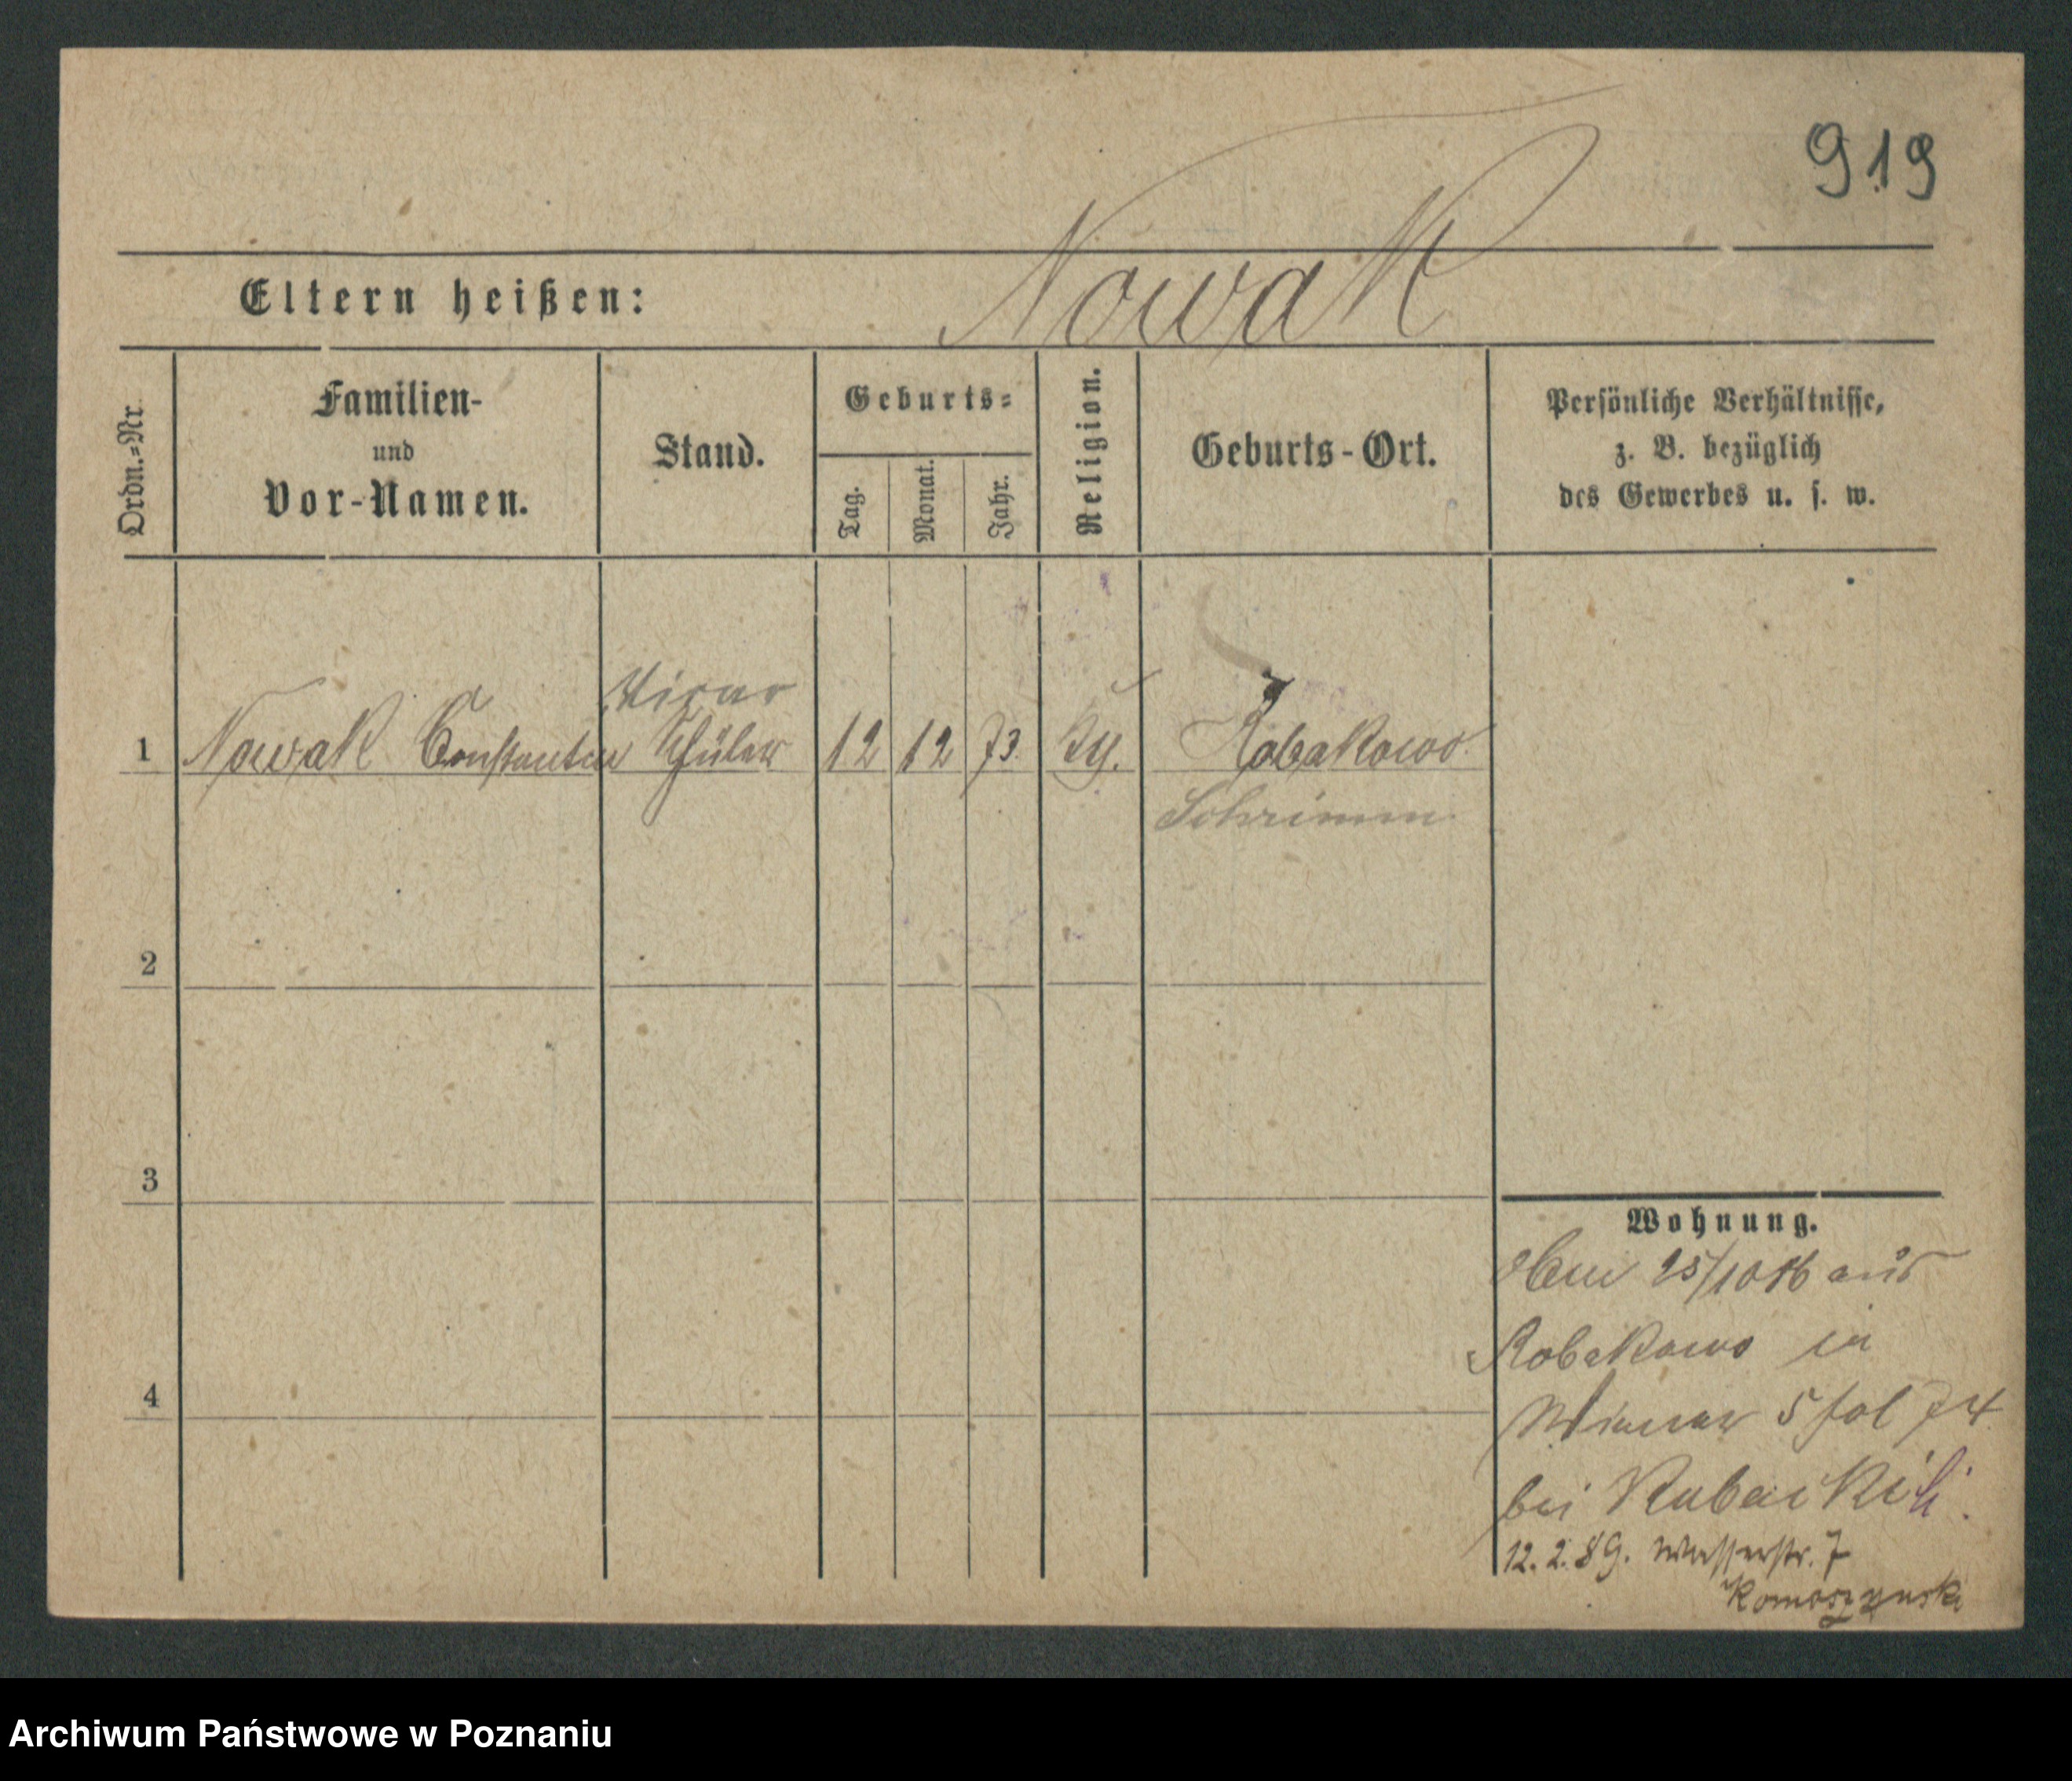 919
Eltern heißen: Nowak
Ordn.=Nr.
Familien-
und
Vor-Namen.
Stand.
Geburts=
Tag.
Monat.
Jahr.
Religion.
Geburts-Ort.
Persönliche Verhältnisse,
z. B. bezüglich
des Gewerbes u. s. w.
Vicar
1 Nowak Constantin Schüler 12 12 73 Robakowo
Schrimm
2
3
4
Wohnung.
25/10 86 aus
Robakowo in
5 fol 74
bei
12. 2. 89. Wasserstr. 7
Komoszynski
Archiwum Państwowe w Poznaniu